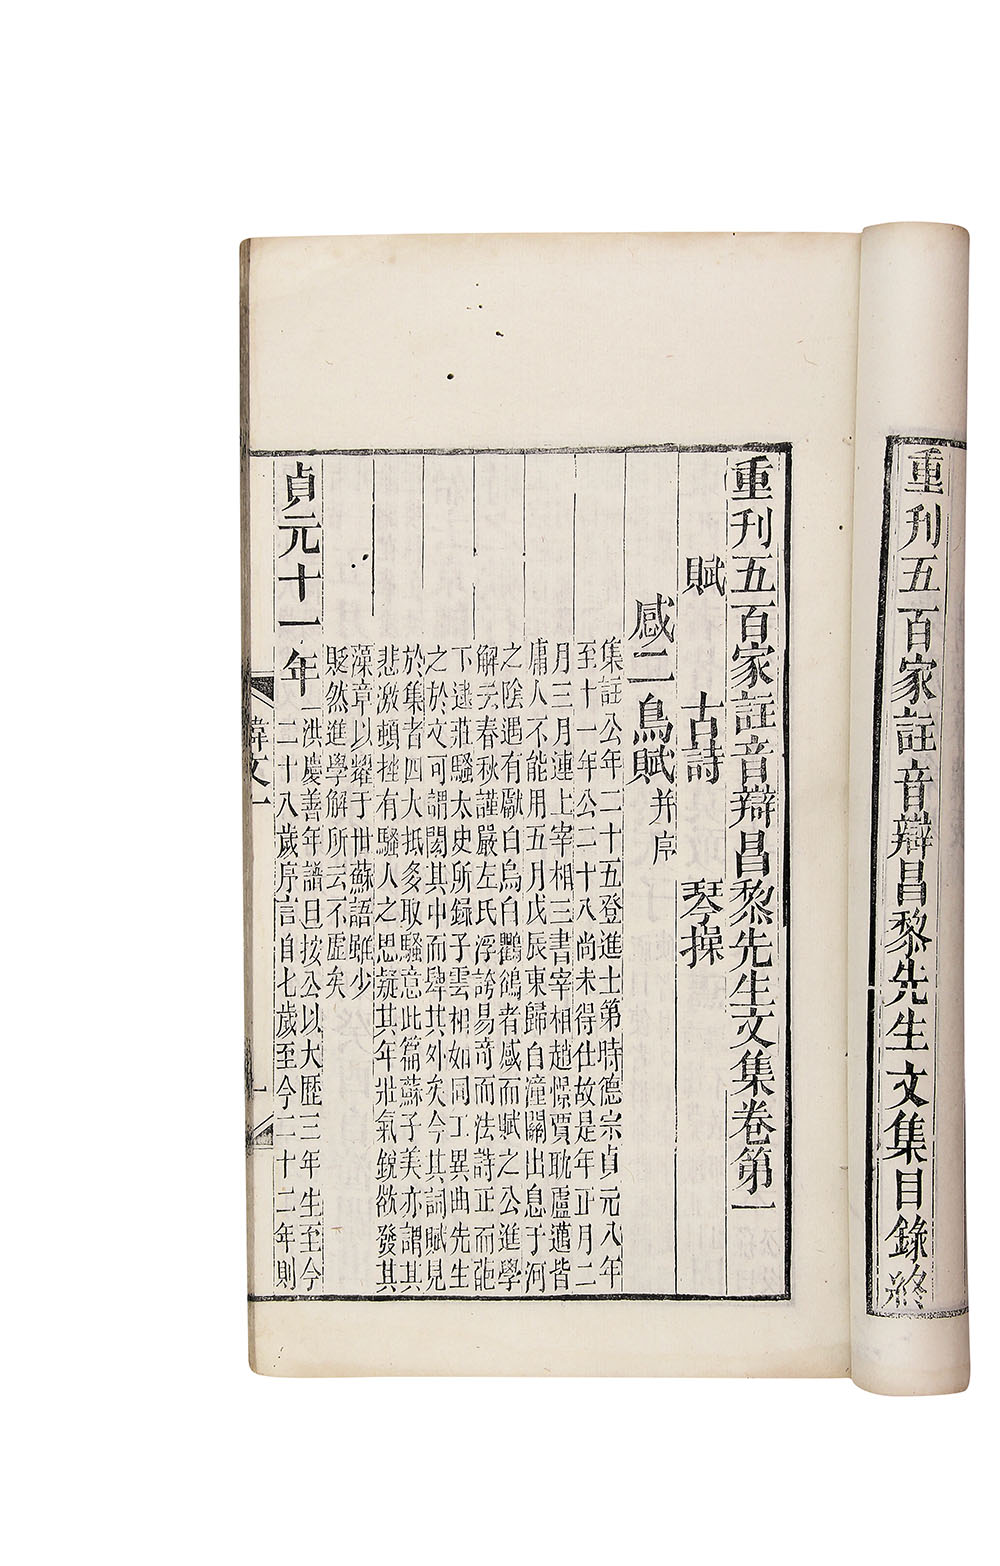 重刊五百家註音辯昌黎先生文集目錄終
重刊五百家註音辯昌黎先生文集卷第一
賦 古詩 琴操
感二鳥賦并序
集註公年二十五登進士第時德宗貞元八年
至十一年公二十八尚未得仕故是年正月二
月三月連上宰相三書宰相趙憬賈耽盧邁皆
庸人不能用五月戊辰東歸自潼關出息于河
之陰遇有獻白烏白鸜鵒者感而賦之公進學
解云春秋謹嚴左氏浮誇易奇而法詩正而葩
下逮莊騷太史所錄子雲相如同工異曲先生
之於文可謂閎其中而肆其外矣今其詞賦見
於集者四大抵多取騷意此篇蘇子美亦謂其
悲激頓挫有騷人之思疑其年壯氣銳欲發其
藻章以耀于世蘇語雖少
貶然進學解所云不虛矣
貞元十一年
洪慶善年譜曰按公以大曆三年生至今
二十八歲序言自七歲至今二十二年則